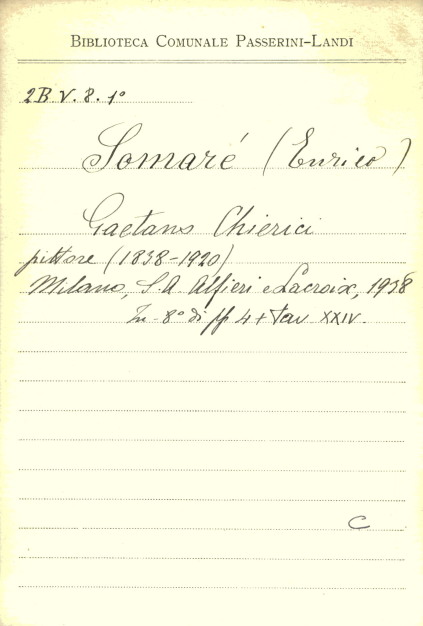 BIBLIOTECA COMUNALE PASSERINI-LANDI
2B. V. 8. 1°
Somaré (Enrico)
Gaetano Chierici
pittore (1838-1920)
Milano, S. A. Alfieri e Lacroix, 1938
In-8° di pp 4 + Tav XXIV.
C